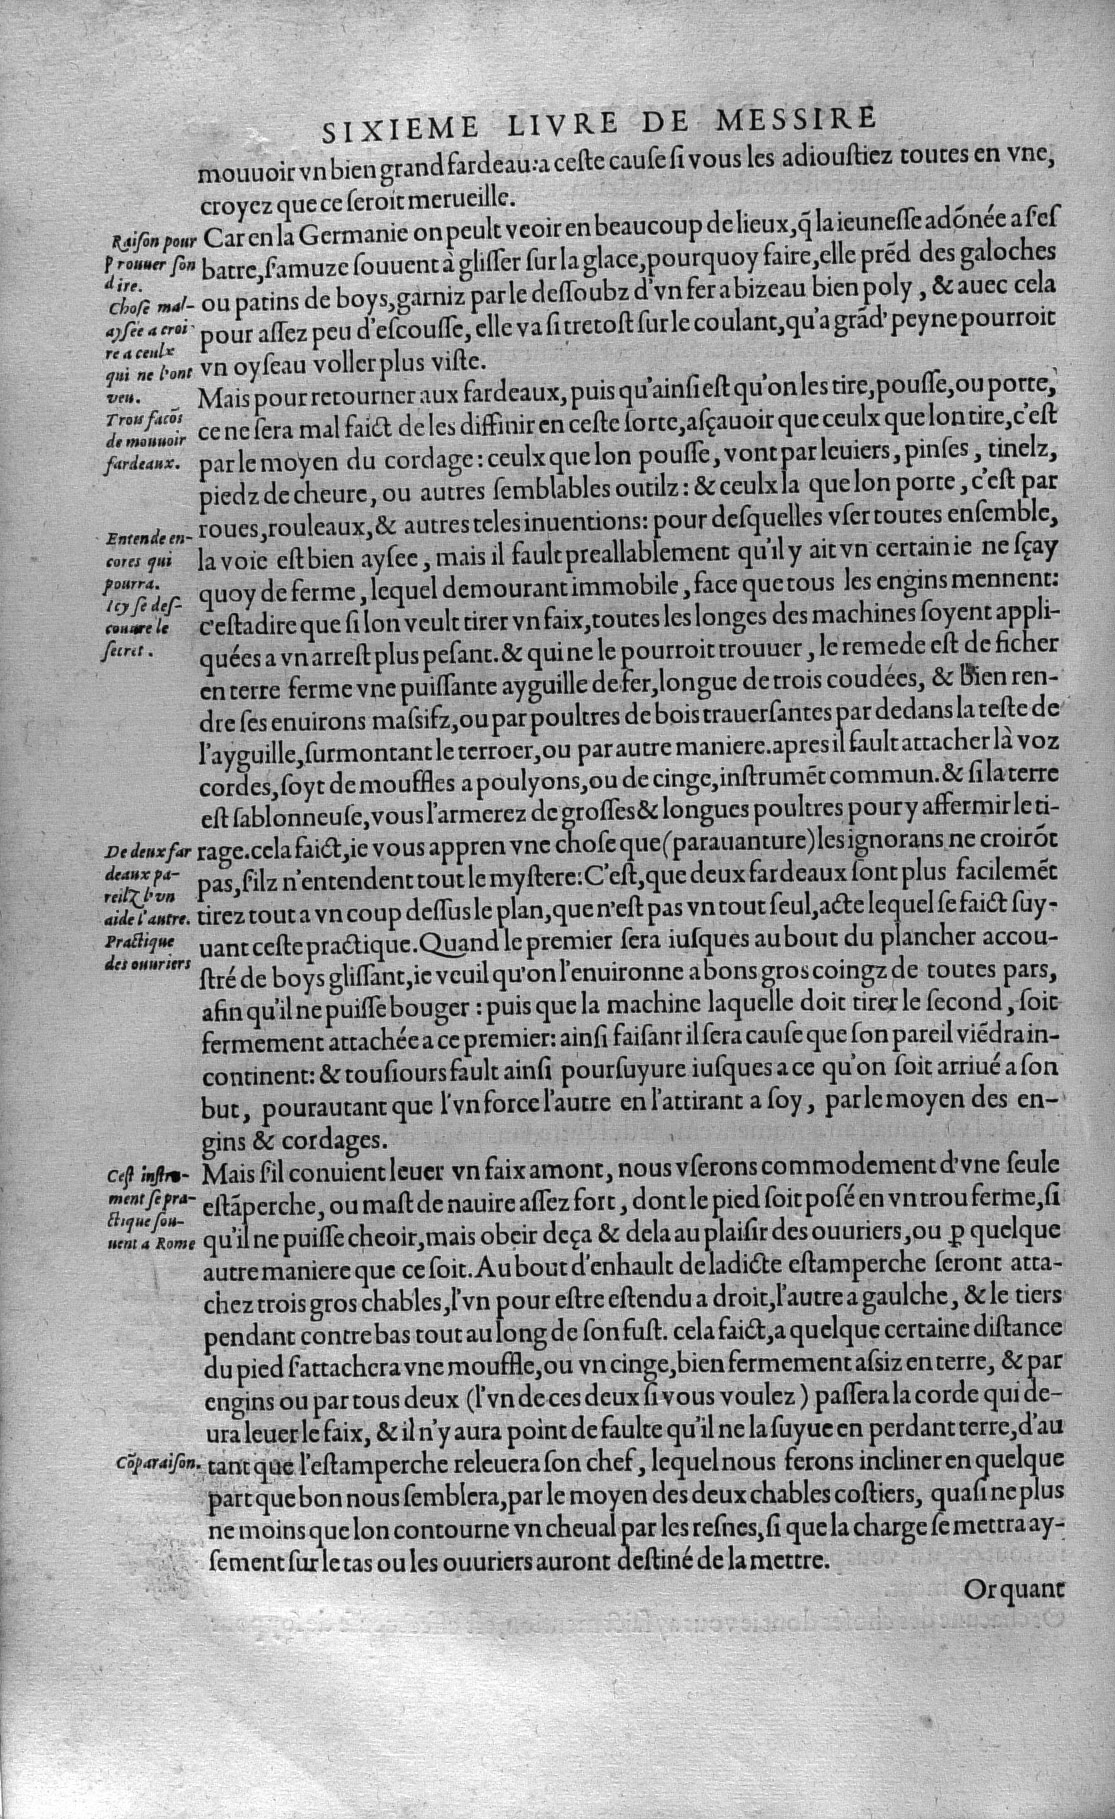 SIXIEME LIVRE DE MESSIRE
mouuoir vn bien grand fardeau: a ceste cause si vous les adioustiez toutes en vne,
croyez que ce seroit merueille.
Raison pour
prouuer son
dire.
Chose mal-
aysée a croi
re a ceulx
qui ne l'ont
veu.
Car en la Germanie on peult veoir en beaucoup de lieux, q̃ la ieunesse adõnée a s'es
batre, s'amuze souuent à glisser sur la glace, pourquoy faire, elle prẽd des galoches
ou patins de boys, garniz par le dessoubz d'vn fer a bizeau bien poly, & auec cela
pour assez peu d'escousse, elle va si tretost sur le coulant, qu'a grãd' peyne pourroit
vn oyseau voller plus viste.
Trois facõs
de mouuoir
fardeaux.
Mais pour retourner aux fardeaux, puis qu'ainsi est qu'on les tire, pousse, ou porte,
ce ne sera mal faict de les diffinir en ceste sorte, asçauoir que ceulx que lon tire, c'est
par le moyen du cordage: ceulx que lon pousse, vont par leuiers, pinses, tinelz,
piedz de cheure, ou autres semblables outilz: & ceulx la que lon porte, c'est par
roues, rouleaux, & autres teles inuentions: pour desquelles vser toutes ensemble,
Entende en-
cores qui
pourra.
Icy se des-
couure le
secrit.
la voie est bien aysee, mais il fault preallablement qu'il y ait vn certain ie ne sçay
quoy de ferme, lequel demourant immobile, face que tous les engins mennent:
c'estadire que si lon veult tirer vn faix, toutes les longes des machines soyent appli-
quées a vn arrest plus pesant. & qui ne le pourroit trouuer, le remede est de ficher
en terre ferme vne puissante ayguille de fer, longue de trois coudées, & bien ren-
dre ses enuirons massifz, ou par poultres de bois trauersantes par dedans la teste de
l'ayguille, surmontant le terroer, ou par autre maniere. apres il fault attacher là voz
cordes, soyt de mouffles a poulyons, ou de cinge, instrumẽt commun. & si la terre
est sablonneuse, vous l'armerez de grosses & longues poultres pour y affermir le ti-
De deux far
deaux pa-
reilz l'vn
aide l'autre.
Practique
des ouuriers
rage. cela faict, ie vous appren vne chose que (parauanture) les ignorans ne croirõt
pas, s'ilz n'entendent tout le mystere: C'est, que deux fardeaux sont plus facilemẽt
tirez tout a vn coup dessus le plan, que n'est pas vn tout seul, acte lequel se faict suy-
uant ceste practique. Quand le premier sera iusques au bout du plancher accou-
stré de boys glissant, ie veuil qu'on l'enuironne a bons gros coingz de toutes pars,
afin qu'il ne puisse bouger: puis que la machine laquelle doit tirer le second, soit
fermement attachée a ce premier: ainsi faisant il sera cause que son pareil viẽdra in-
continent: & tousiours fault ainsi poursuyure iusques a ce qu'on soit arriué a son
but, pourautant que l'vn force l'autre en l'attirant a soy, par le moyen des en-
gins & cordages.
Cest instru-
ment se pra-
ctique sou-
uent a Rome
Mais s'il conuient leuer vn faix amont, nous vserons commodement d'vne seule
estãperche, ou mast de nauire assez fort, dont le pied soit posé en vn trou ferme, si
qu'il ne puisse cheoir, mais obeir deça & dela au plaisir des ouuriers, ou ꝑ quelque
autre maniere que ce soit. Au bout d'enhault de ladicte estamperche seront atta-
chez trois gros chables, l'vn pour estre estendu a droit, l'autre a gaulche, & le tiers
pendant contre bas tout au long de son fust. cela faict, a quelque certaine distance
du pied s'attachera vne mouffle, ou vn cinge, bien fermement assiz en terre, & par
engins ou par tous deux (l'vn de ces deux si vous voulez) passera la corde qui de-
ura leuer le faix, & il n'y aura point de faulte qu'il ne la suyue en perdant terre, d'au
Cõparaison.
tant que l'estamperche releuera son chef, lequel nous ferons incliner en quelque
part que bon nous semblera, par le moyen des deux chables costiers, quasi ne plus
ne moins que lon contourne vn cheual par les resnes, si que la charge se mettra ay-
sement sur le tas ou les ouuriers auront destiné de la mettre.
Or quant